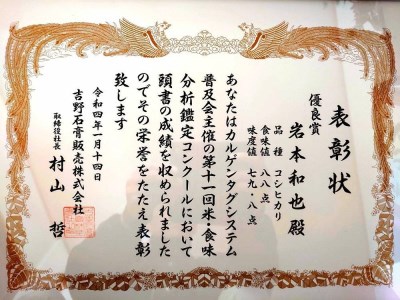 表彰状
優良賞
岩本和也殿
品種 コシヒカリ
食味値 八八点
味度値 七九・八点
あなたはカルゲンタグシステム
普及会主催の第十一回米・食味
分析鑑定コンクールにおいて
頭書の成績を収められました
のでその栄誉をたたえ表彰
致します
令和四年一月十四日
吉野石膏販売株式会社
取締役社長 村山 哲